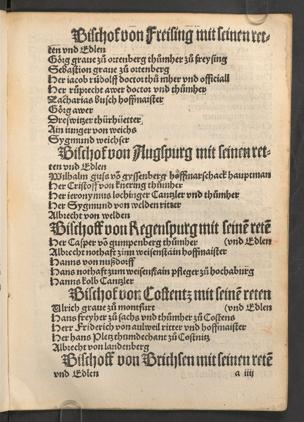 Bischof von Freising mit seinen ret-
ten vnd Edlen
Görg graue zů ortenberg thůmher zů freysing
Sebastion graue zů ortenberg
Her iacob rüdolff doctor thůmher vnd officiall
Her růprecht awer doctor vnd thůmher
Zacharias busch hoffmaister
Görg awer
Dreswitzer thürhüetter
Ain iunger von weichs
Sygmund weichser
Bischof von Augspurg mit seinen ret-
ten vnd Edlen
Wilhalm guß vō gyssenberg hoffmarschack hauptman
Her Cristoff von knering thůmher
Her ieronymus lochinger Cantzler vnd thůmher
Her Sygmund von welden ritter
Albrecht von welden
Bischoff von Regenspurg mit seinē retē
Her Casper vō gumpenberg thůmher (vnd Edlen
Albrecht nothaft zinn weisenstain hoffmaister
Hanns von nußdorff
Hans nothaft zum weisenstain pfleger zů hochaburg
Hanns kolb Cantzler
Bischof von Costentz mit seinē reten
Ulrich graue zů montfurt (vnd Edlen
Hans freyher zů sachs vnd thůmher zů Costens
Herr Friderich von aulweil ritter vnd hoffmaister
Her hans Pletz thumdechant zů Costnitz
Albrecht von landenberg
Bischoff von Brichsen mit seinen retē
vnd Edlen a iiij